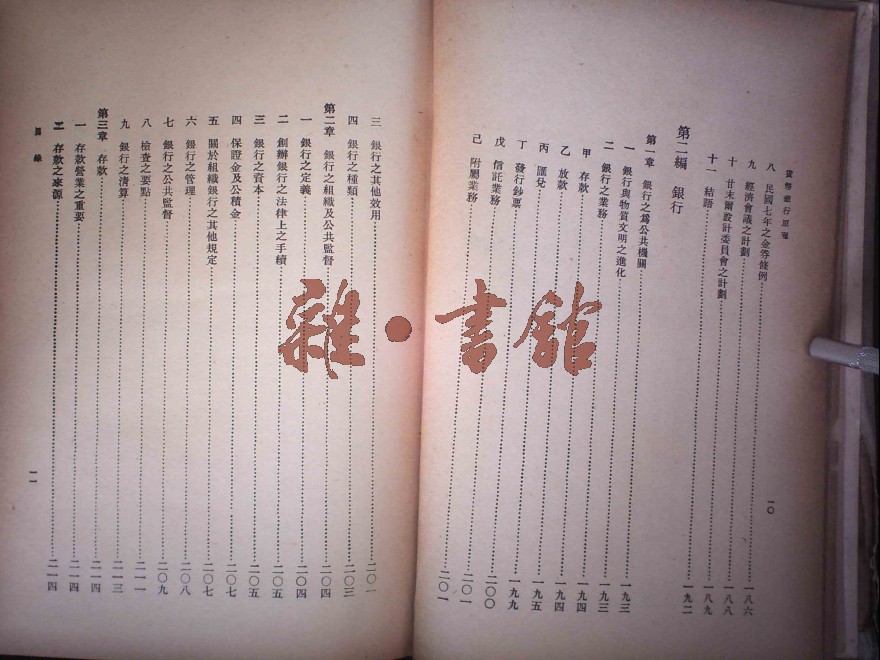 貨幣銀行原理
一〇
八 民國七年之金券條例………一八六
九 經濟會議之計劃………一八八
十 甘末爾設計委員會之計劃………一八九
十一 結語………一九二
第二編 銀行
第一章 銀行之爲公共機關………一九三
一 銀行與物質文明之進化………一九三
二 銀行之業務………一九四
甲 存款………一九四
乙 放款………一九五
丙 匯兌………一九九
丁 發行鈔票………二〇〇
戊 信託業務………二〇一
己 附屬業務………二〇一
三 銀行之其他效用………二〇一
四 銀行之種類………二〇三
第二章 銀行之組織及公共監督………二〇四
一 銀行之定義………二〇四
二 創辦銀行之法律上之手續………二〇五
三 銀行之資本………二〇五
四 保證金及公積金………二〇七
五 關於組織銀行之其他規定………二〇七
六 銀行之管理………二〇八
七 銀行之公共監督………二〇九
八 檢查之要點………二一一
九 銀行之清算………二一三
第三章 存款………二一四
一 存款營業之重要………二一四
二 存款之來源………二一四
目錄
一一
雜·書館